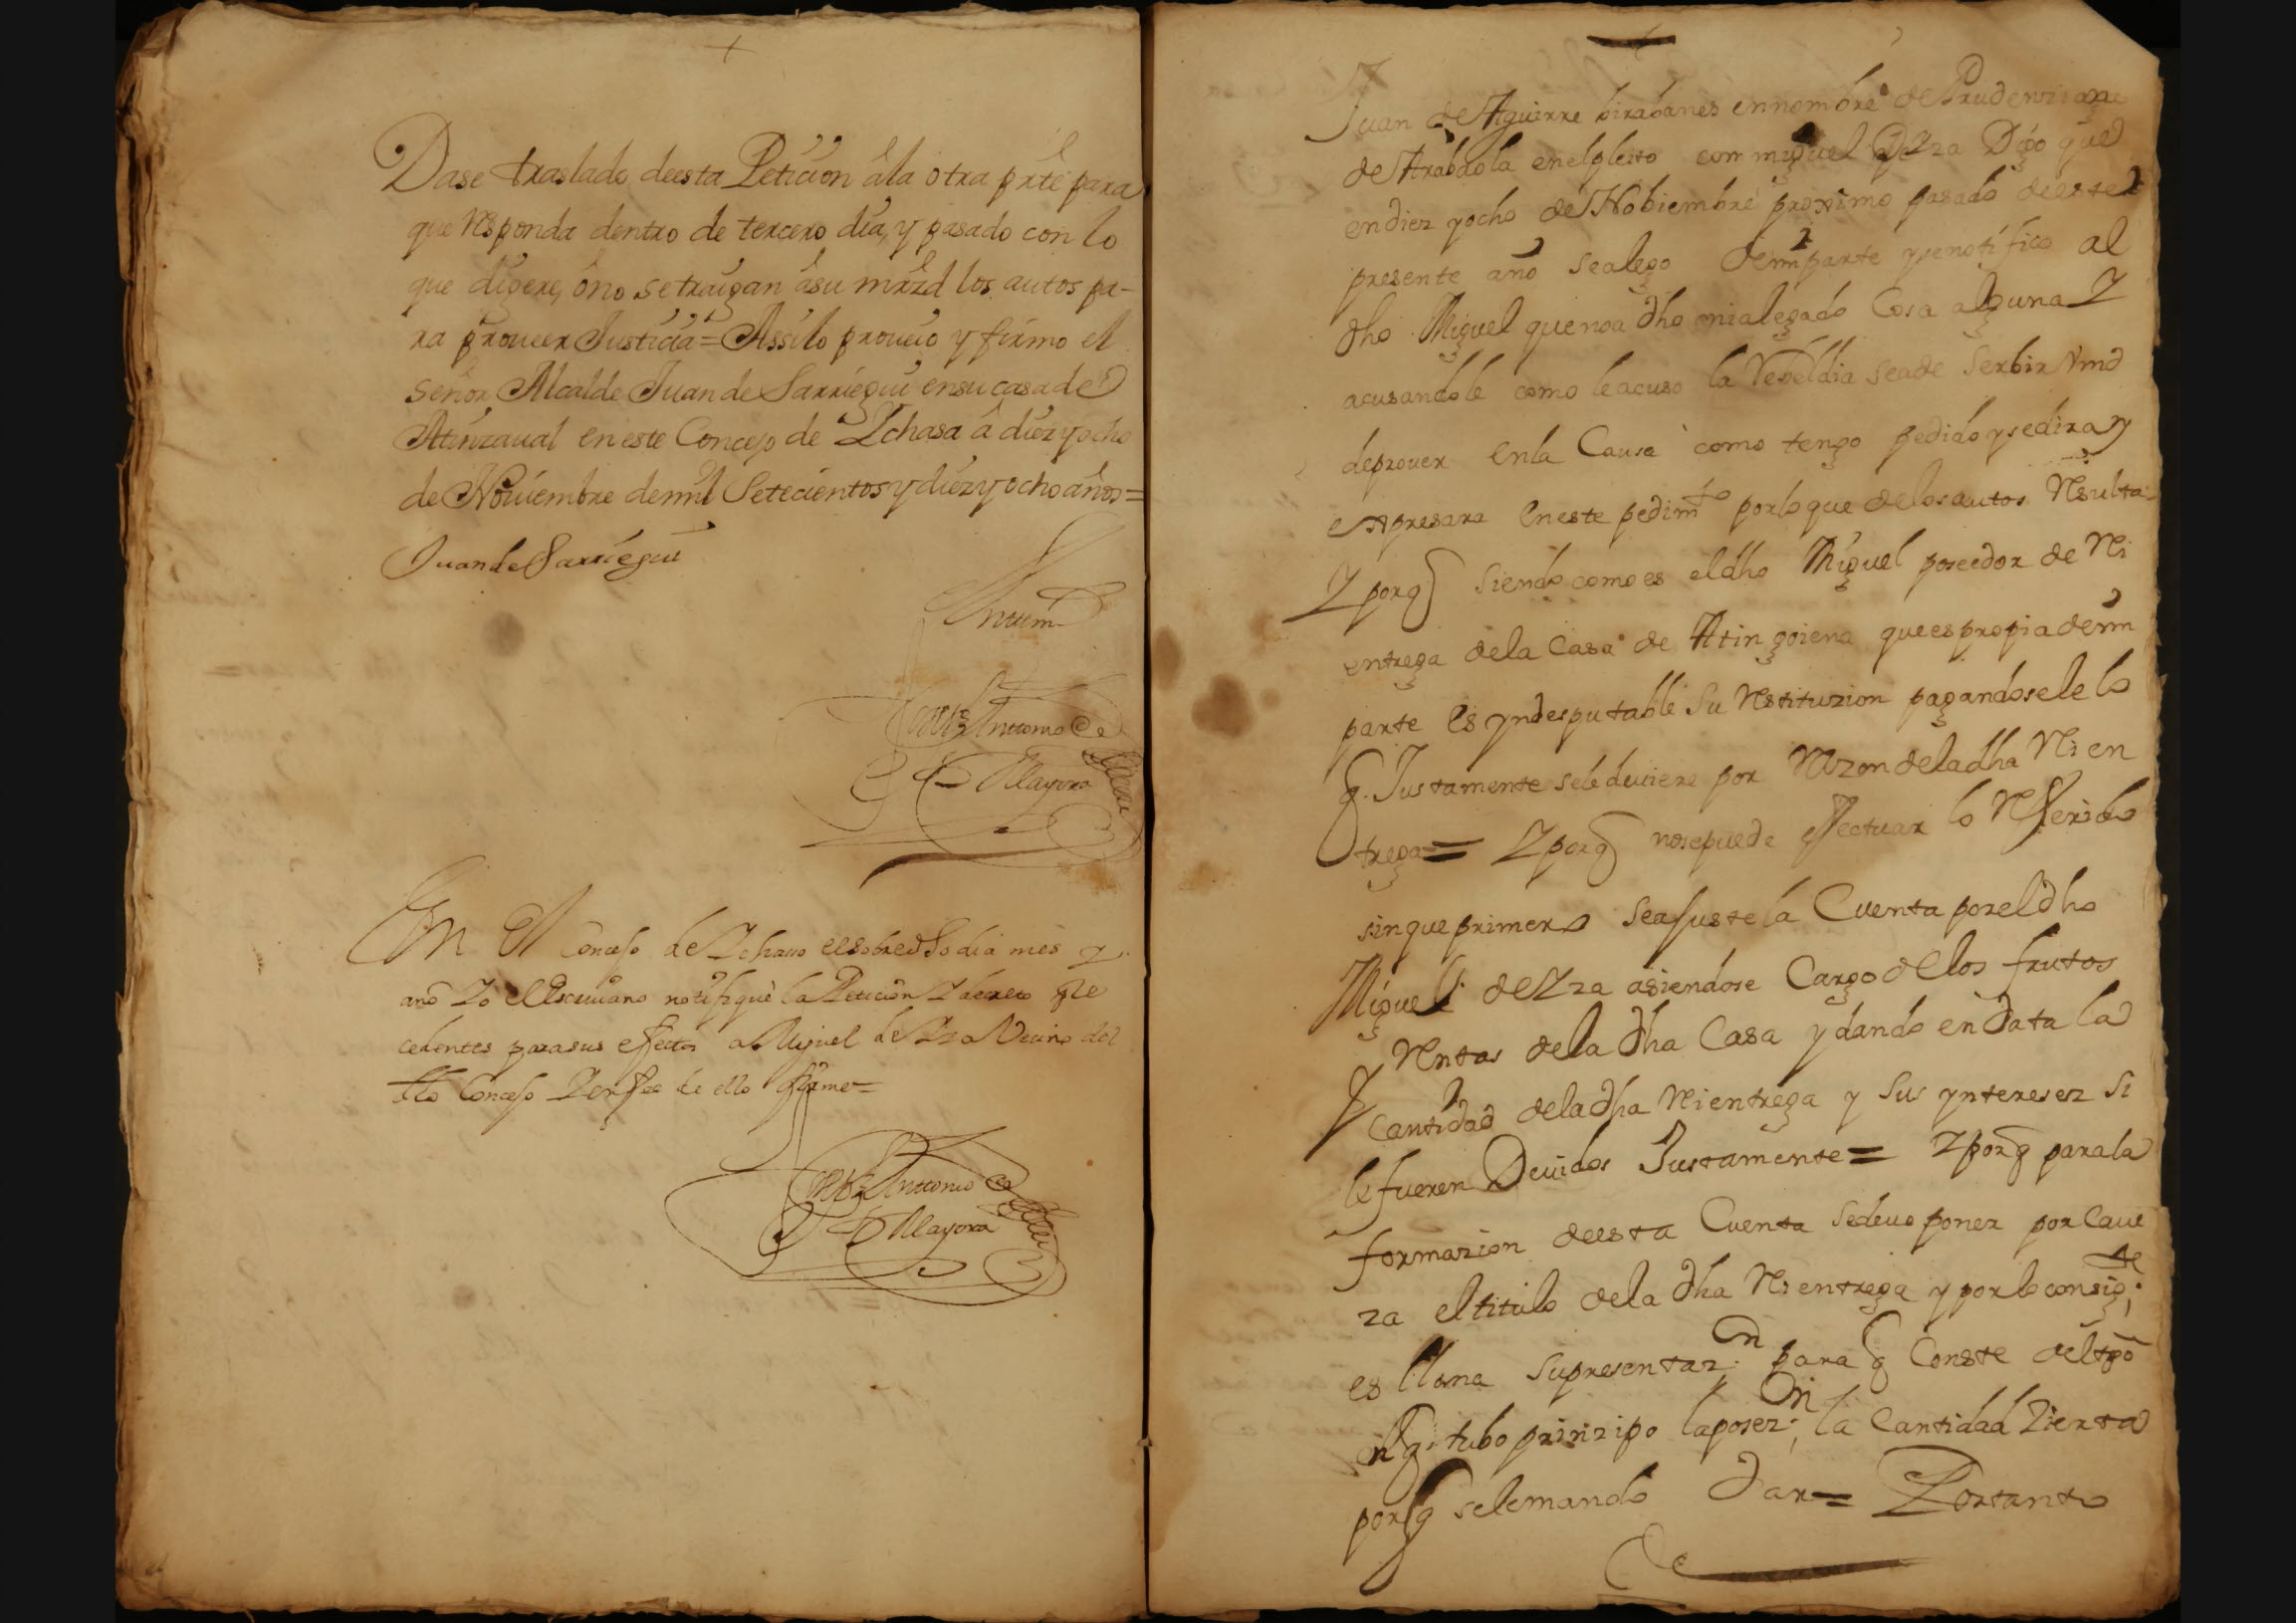 Dase traslado deesta Peticion âla otra parte para
que Responda dentro de tercero dia, y pasado con lo
que dixere, ôno se traigan âsu mrzd los autos pa-
ra proueer Justicia = Assilo proueio y firmo el
señor Alcalde Juan de Sarriegui ensucasa de
Atinzaual en este Concejo de Ichaso â diez y ocho
de Nouiembre demil Setecientos y diez y ocho años =
Juan de Sarriegui
Antemi
Antonio de
Mayora
En el Concejo de Ichasso el sobredho dia mes y
año Yo el Escriuano notifiqué la Peticion Y decreto pre
cedentes parasus efectos a Miguel de Yza Vecino del
dho Concejo Y en fee de ello firme =
Antonio de
Mayora
Juan de Aguirre birabanes ennombre de Prudenziana
de Arabaola enelpleito con miguel de Yza Digo que
endiez yocho de Nobiembre proximo pasado deeste
presente año sealego demi parte ysenotifico al
dho Miguel quenoa dho nialegado Cosa alguna Y
acusandole como leacuso la Reveldia seade Serbir Vmd
deprouer enla Causa como tengo pedido ysedira y
expresara eneste pedimto porloque delosautos Resulta-
Y porq siendo comoes eldho Miguel poseedor de Ri
entrega dela Casa de Atingoiena queespropia demi
parte es yndesputable Su Restituzion pagandosele lo
q. Justamente seledeuiere por Razon deladha Rien
trega = Y porq nosepuede effectuar lo Refferido
sinqueprimero seajuste la Cuenta poreldho
Miguel deYza asiendose Cargo delos frutos
Y Rentas dela dha Casa y dando en data la
Cantidad deladha Rientrega y Sus yntereses si
lefueren Deuidos Justamente = Y porq parala
formazion deesta Cuenta sedeue poner por Caue
za eltitulo dela dha Rientrega y porloconsigte.
es llana supresentazn. para q Conste deltpo
enq. tubo prinzipo laposezn, la Cantidad Zierta
porq selemando Dar = Portanto